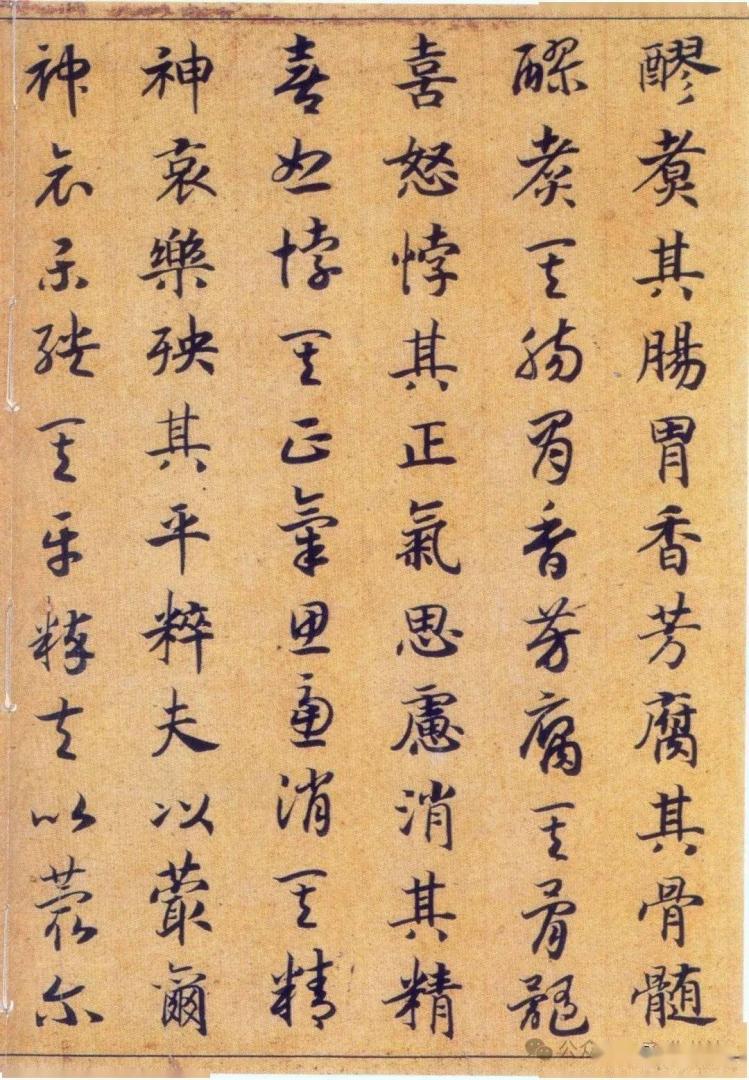 醪煮其腸胃香芳腐其骨髓
醪煮其腸胃香芳腐其骨髓
喜怒悖其正氣思慮消其精
喜怒悖其正氣思慮消其精
神哀樂殃其平粹夫以蕞爾
神哀樂殃其平粹夫以蕞尔
公众